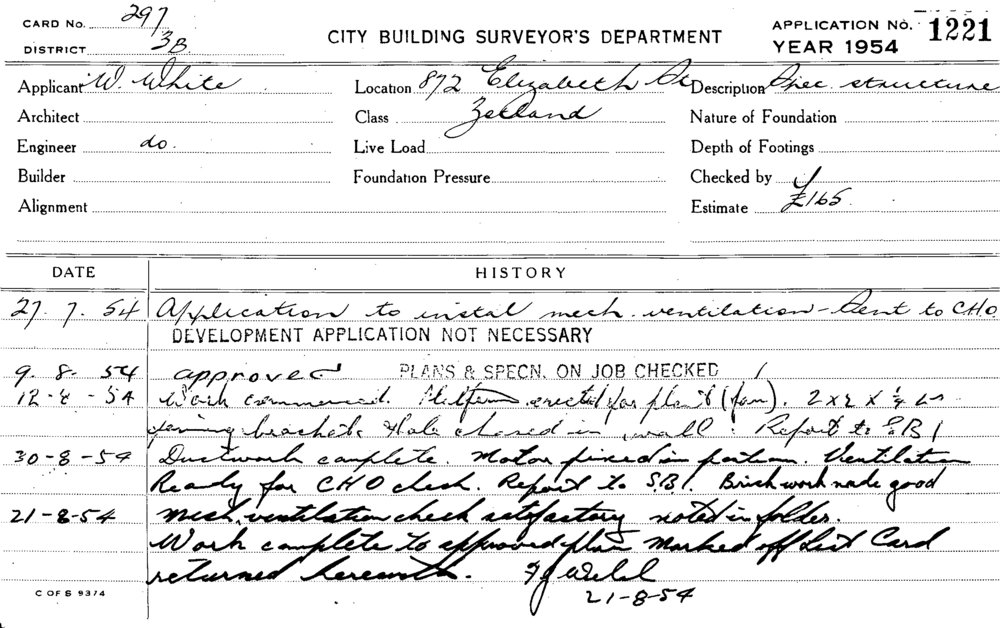 CARD NO. 297
DISTRICT 3B
CITY BUILDING SURVEYOR'S DEPARTMENT
APPLICATION NO. 1221
YEAR 1954
Applicant W. White
Location 872 Elizabeth St
Description Spec. structure
Architect
Class Zetland
Nature of Foundation
Engineer do.
Live Load
Depth of Footings
Builder
Foundation Pressure
Checked by
Alignment
Estimate £165
DATE HISTORY
27. 7. 54 Application to instal mech. ventilation - Sent to CHO
DEVELOPMENT APPLICATION NOT NECESSARY
9. 8. 54 approved PLANS & SPECN. ON JOB CHECKED
12-8-54 Work commenced. Platform erected for plant (fan). 2 x 2 x ¼ Ls
brackets Hole in wall. Report to S.B.1
30-8-54 Ductwork complete. Motor fixed in position. Ventilation
Ready for CHO check. Report to S.B.1. Brickwork made good
21-8-54 Mech. ventilation check satisfactory noted in folder.
Work complete to approved plan Marked off List Card
returned herewith.
21-8-54
C OF S 9374